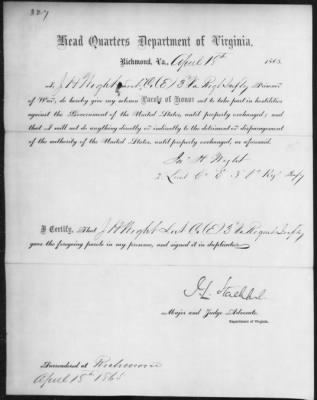 327
Head Quarters Department of Virginia,
Richmond, Va., April 18th 1865.
I, J H Wright Lieut Co (E) 3d Va Regt Infty Prisoner
of War, do hereby give my solemn Parole of Honor not to take part in hostilities
against the Government of the United States, until properly exchanged; and
that I will not do anything directly or indirectly to the detriment or disparagement
of the authority of the United States, until properly exchanged, as aforesaid.
H Wright
2 Lieut Co E 3 Va Regt Infty
I Certify, That J H Wright Lieut Co (E) 3d Va Regiment Infty
gave the foregoing parole in my presence, and signed it in duplicate.
Major and Judge Advocate.
Department of Virginia.
Surrendered at Richmond
April 18th 1865